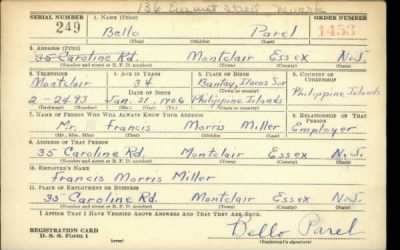 136 Emmet Street Newark
SERIAL NUMBER 1. NAME (Print) ORDER NUMBER
249 Bello Parel 1453
(First) (Middle) (Last)
2. ADDRESS (Print)
35 Caroline Rd. Montclair Essex N.J.
(Number and street or R. F. D. number) (Town) (County) (State)
3. TELEPHONE 4. AGE IN YEARS 5. PLACE OF BIRTH 6. COUNTRY OF CITIZENSHIP
Montclair 34 Bantay, Ilocos Sur
DATE OF BIRTH Philippine Islands
2-2493 Jan. 31, 1906 Philippine Islands
(Exchange) (Number) (Mo.) (Day) (Yr.) (State or country)
7. NAME OF PERSON WHO WILL ALWAYS KNOW YOUR ADDRESS 8. RELATIONSHIP OF THAT PERSON
Mr. Francis Morris Miller Employer
(Mr., Mrs., Miss) (First) (Middle) (Last)
9. ADDRESS OF THAT PERSON
35 Caroline Rd. Montclair Essex N.J.
(Number and street or R. F. D. number) (Town) (County) (State)
10. EMPLOYER'S NAME
Francis Morris Miller
11. PLACE OF EMPLOYMENT OR BUSINESS
35 Caroline Rd. Montclair Essex N.J.
(Number and street or R. F. D. number) (Town) (County) (State)
I AFFIRM THAT I HAVE VERIFIED ABOVE ANSWERS AND THAT THEY ARE TRUE.
REGISTRATION CARD
D. S. S. Form 1
(over)
Bello Parel
(Registrant's signature)